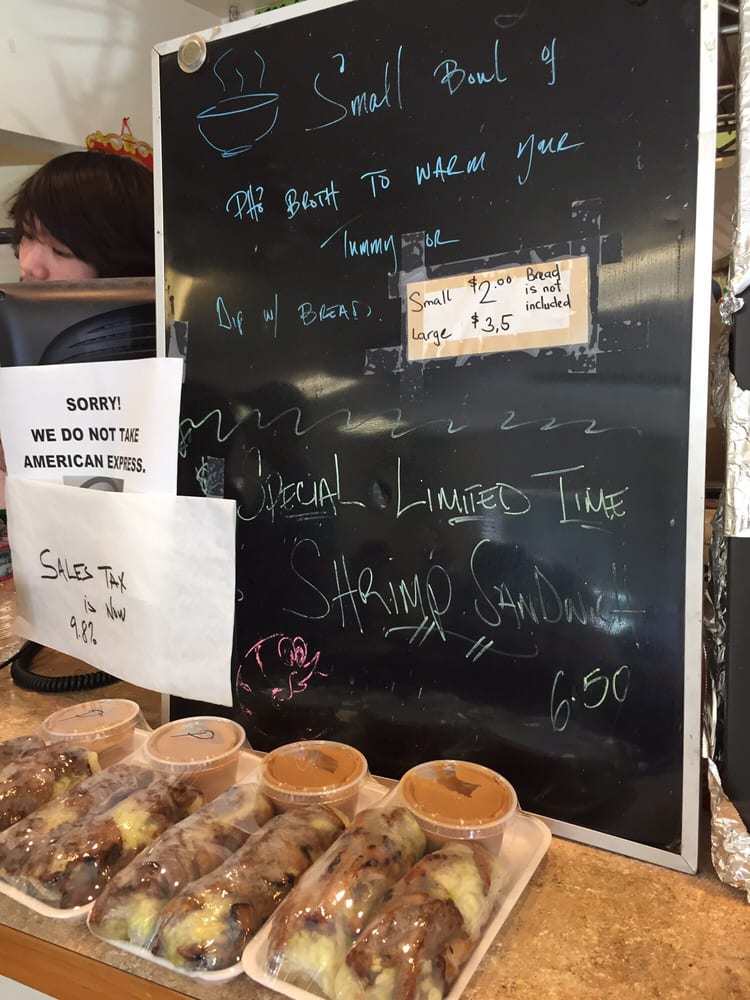 Small Bowl of
PHỞ BROTH TO WARM your
Tummy OR
DIP W/ BREAD.
Small $2.00 Bread is not included
Large $3,5
SORRY!
WE DO NOT TAKE
AMERICAN EXPRESS.
SALES TAX
is NOW
9.8%
SPECIAL LIMITED TIME
SHRIMP SANDWICH
6.50